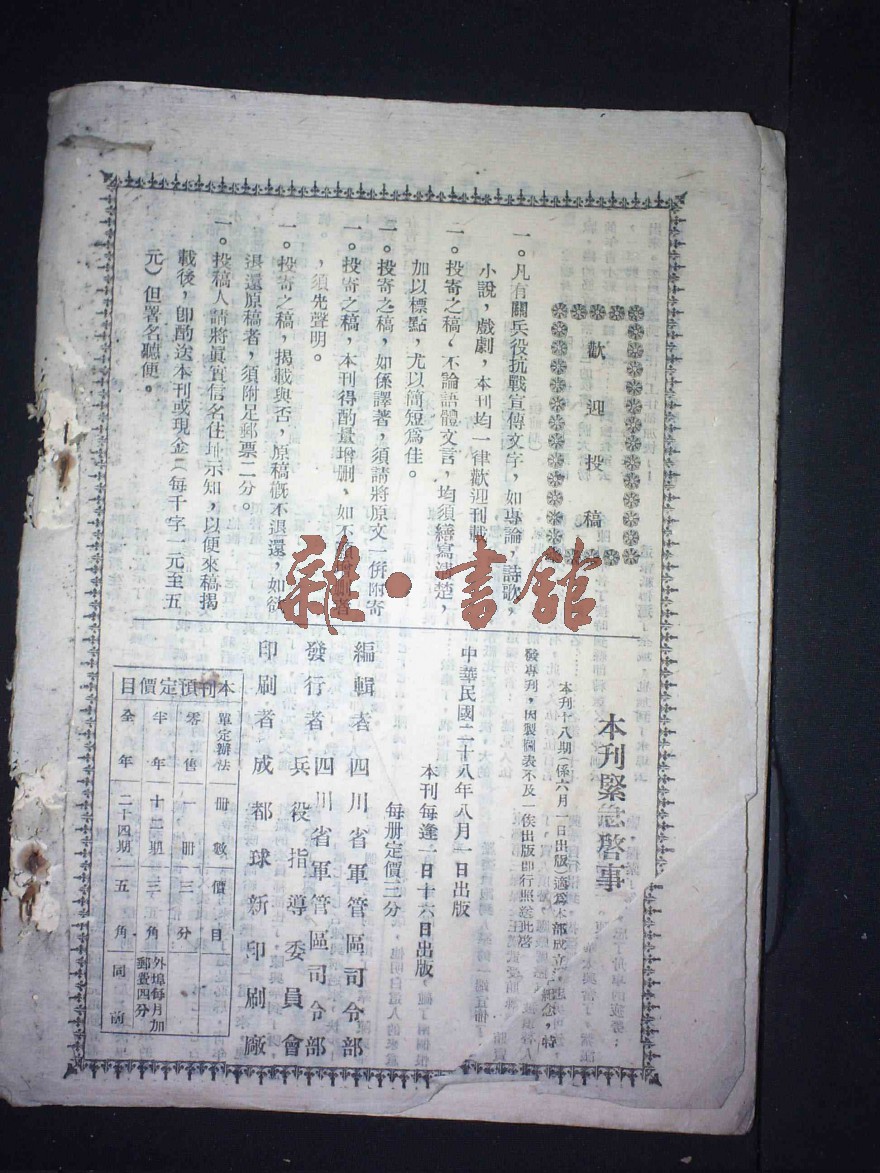 歡迎投稿
一。凡有關兵役抗戰宣傳文字，如專論，詩歌，
小說，戲劇，本刊均一律歡迎刊載。
一。投寄之稿，不論語體文言，均須繕寫清楚，
加以標點，尤以簡短爲佳。
一。投寄之稿，如係譯著，須請將原文一併附寄
一。投寄之稿，本刊得酌量增删，如不願增删者
，須先聲明。
一。投寄之稿，揭載與否，原稿槪不退還，如欲
退還原稿者，須附足郵票二分。
一。投稿人請將眞實信名住址示知，以便來稿揭
載後，卽酌送本刊或現金（每千字一元至五
元）但署名聽便。
本刊緊急啓事
本刊十八期（係六月一日出版）適爲本部成立紀念，特
發專刊，因製圖表不及一俟出版卽行照送此啓
中華民國二十八年八月一日出版
本刊每逢一日十六日出版
每册定價三分
編輯者 四川省軍管區司令部
發行者 四川省軍管區司令部
兵役指導委員會
印刷者 成都球新印刷廠
本刊預定價目
單定辦法 册數 價目
零售 一册 三分
半年 十二期 三角 外埠每月加郵費四分
全年 二十四期 五角 同前
雜·書館